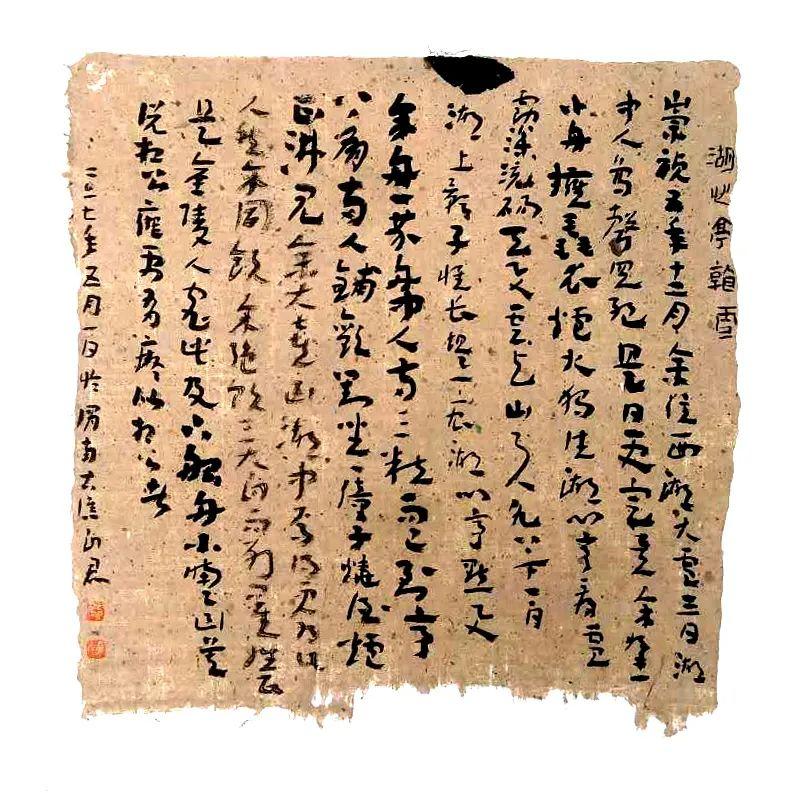 湖心亭雪
崇祯五年十二月余住西湖大雪三日湖
中人鸟聲俱絶是日更定矣余拏一
小舟擁毳衣炉火独往湖心亭看雪
雾凇沆砀天与雲与山与水上下一白
湖上影子惟长堤一痕湖心亭點与
余舟一芥舟人两三粒而已到亭
上有两人鋪氈對坐一童子燒酒爐
正沸见余大喜曰湖中焉得更有此
人拉余同飲余强飲三大白而别问其姓氏
是金陵人客此及下船舟子喃喃曰莫
说相公痴更有癡似相公者
二〇一七年五月一日於渭南大信